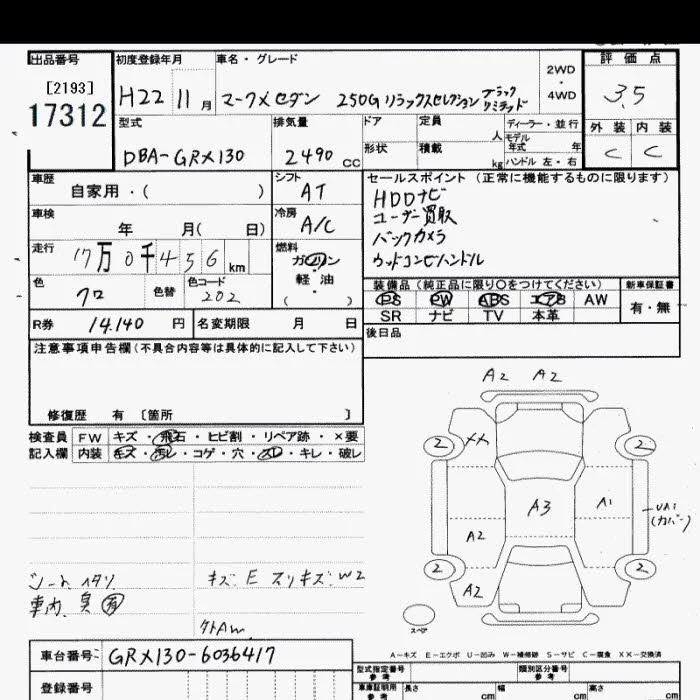 出品番号
[2193]
17312
初度登録年月
H22 11月
車名・グレード
マークXセダン 250G リラックスセレクション ブラックリミテッド
2WD
・
4WD
評価点
3.5
外装 内装
C C
型式
DBA-GRX130
排気量
2490 CC
ドア
定員
人
形状
積載
kg
ディーラー・並行
モデル年式 年
ハンドル 左・右
車歴
自家用・( )
シフト
AT
車検
年 月( 日)
冷房
A/C
走行
17万0千456km
燃料
ガソリン
・
軽油
( )
色
クロ
色替
色コード
202
R券
14.140 円
名変期限 月 日
セールスポイント (正常に機能するものに限ります)
HDDナビ
ユーザー買取
バックカメラ
ウッドコンビハンドル
装備品(純正品に限り○をつけてください)
PS PW ABS エアB AW
SR ナビ TV 本革
新車保証書
有・無
後日品
注意事項申告欄(不具合内容等は具体的に記入して下さい)
修復歴 有 〔箇所 〕
検査員記入欄
FW キズ・飛石・ヒビ割・リペア跡・×要
内装 キズ・汚レ・コゲ・穴・スレ・キレ・破レ
シートヘタリ
車内 臭 有
キズ:E スリキズ:W2
A2 A2
2 XX 2
A3 A1
UA1
(カバー)
A2
2 2
A2
スペア
A-キズ E-エクボ U-凹み W-補修跡 S-サビ C-腐食 XX-交換済
車台番号
GRX130-6036417
登録番号
型式指定番号
類別区分番号
車庫証明用参考 長さ cm 幅 cm 高さ cm